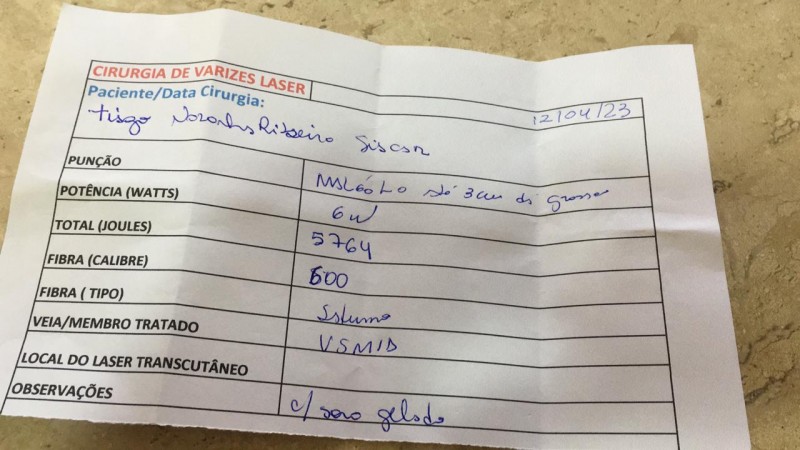 CIRURGIA DE VARIZES LASER
Paciente/Data Cirurgia: 12/04/23
Tiago Ribeiro
PUNÇÃO até 3cm di
POTÊNCIA (WATTS) 6W
TOTAL (JOULES) 5764
FIBRA (CALIBRE) 600
FIBRA ( TIPO)
VEIA/MEMBRO TRATADO VSMID
LOCAL DO LASER TRANSCUTÂNEO
OBSERVAÇÕES c/ soro gelado